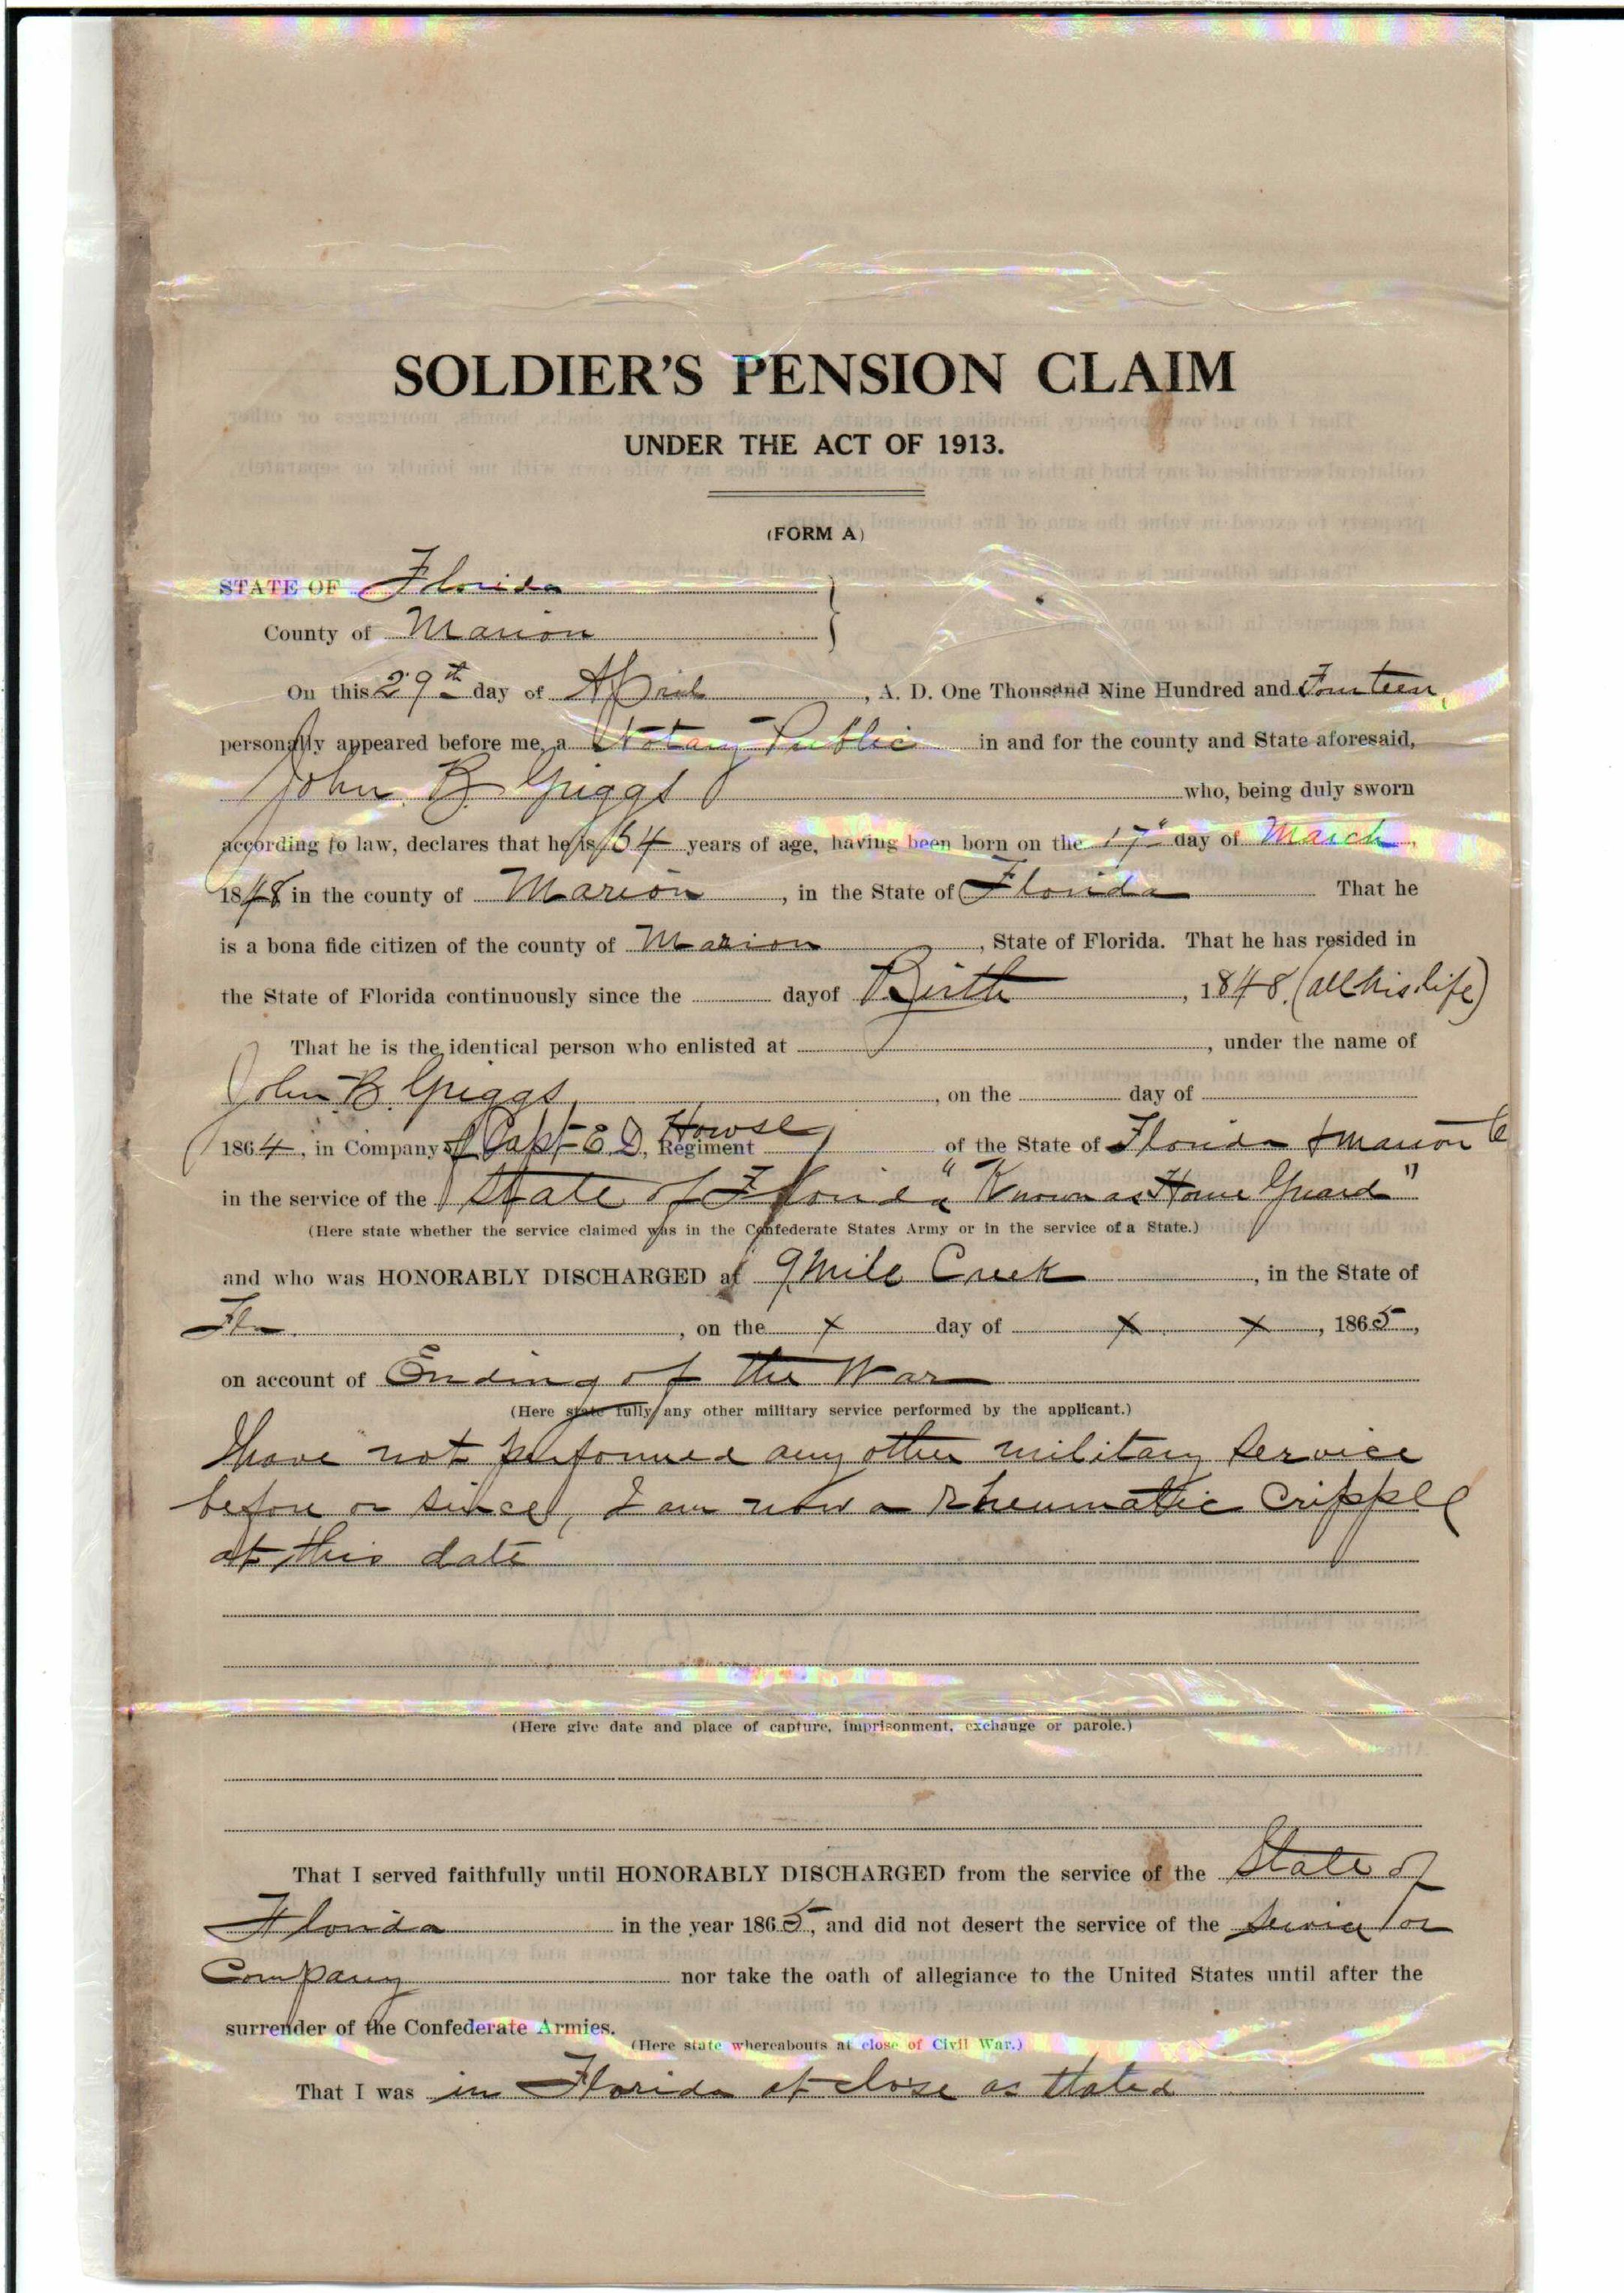 SOLDIER'S PENSION CLAIM
UNDER THE ACT OF 1913.
(FORM A)
STATE OF Florida
County of Marion
On this 29th day of April, A. D. One Thousand Nine Hundred and Fourteen,
personally appeared before me, a Notary Public in and for the county and State aforesaid,
John B Griggs who, being duly sworn
according to law, declares that he is 64 years of age, having been born on the 17" day of March,
1848 in the county of Marion, in the State of Florida That he
is a bona fide citizen of the county of Marion, State of Florida. That he has resided in
the State of Florida continuously since the day of Birth, 1848. (all his life)
That he is the identical person who enlisted at , under the name of
John B. Griggs, on the day of
1864, in Company of Capt E. D. Howse, Regiment of the State of Florida & Marion Co
in the service of the State of Florida "Known as Home Guard"
(Here state whether the service claimed was in the Confederate States Army or in the service of a State.)
and who was HONORABLY DISCHARGED at 9 Mile Creek, in the State of
Fla., on the x day of x x, 1865,
on account of Ending of the War
(Here state fully any other military service performed by the applicant.)
I have not performed any other military service
before or since, I am now a Rheumatic Cripple
at this date
(Here give date and place of capture, imprisonment, exchange or parole.)
That I served faithfully until HONORABLY DISCHARGED from the service of the State of
Florida in the year 1865, and did not desert the service of the service or
Company nor take the oath of allegiance to the United States until after the
surrender of the Confederate Armies.
(Here state whereabouts at close of Civil War.)
That I was in Florida at close as stated